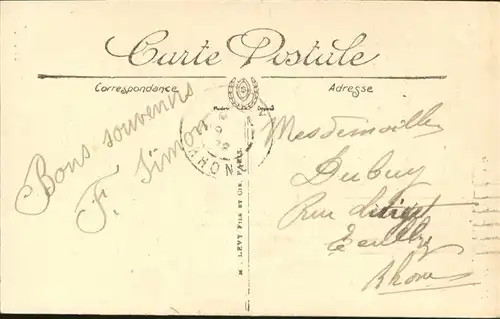 Carte Postale
Correspondance
Adresse
Bons souvenirs
F. Simon
RHON
LEVY FILS ET CIE. PARIS
Mesdemoiselles
Dubuy
Rue
Rhône